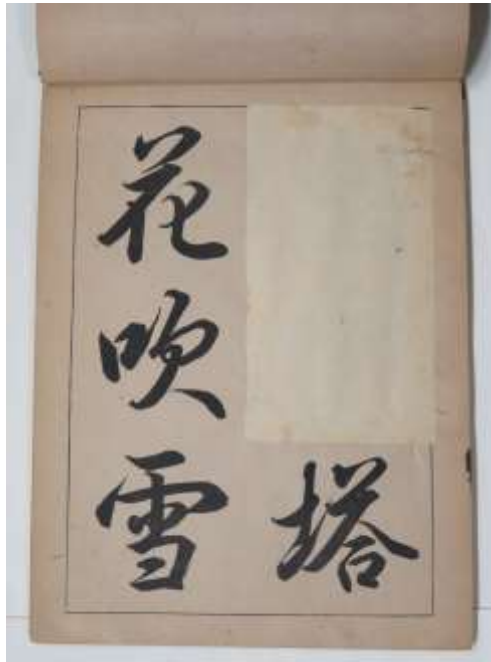 塔
花吹雪